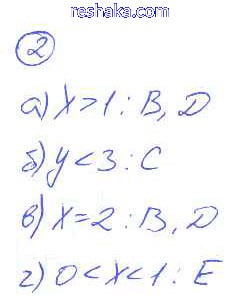 reshaka.com
2
а) x > 1 : B, D
б) y < 3 : C
в) x = 2 : B, D
г) 0 < x < 1 : E